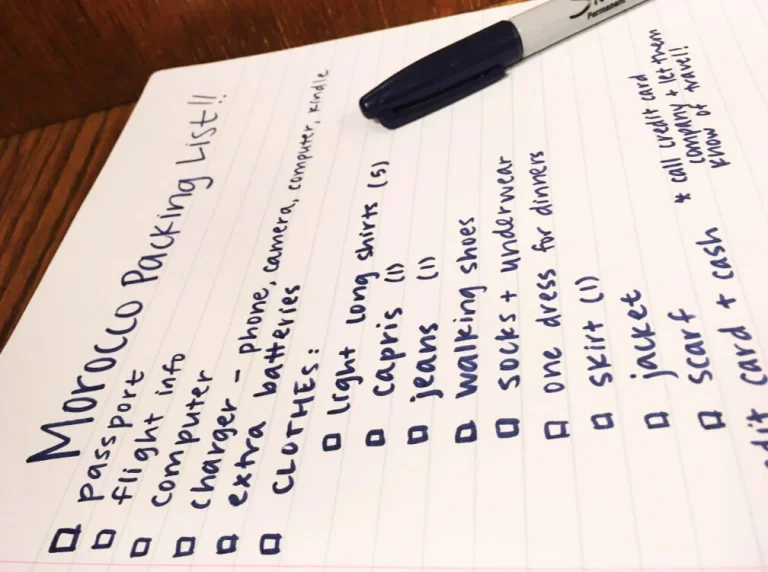 Morocco Packing List!!
passport
flight info
computer
charger - phone, camera, computer, kindle
extra batteries
CLOTHES:
light long shirts (5)
capris (1)
jeans (1)
walking shoes
socks + underwear
one dress for dinners
skirt (1)
jacket
scarf
card + cash
* call credit card
company + let them
know of travel!
Permanent